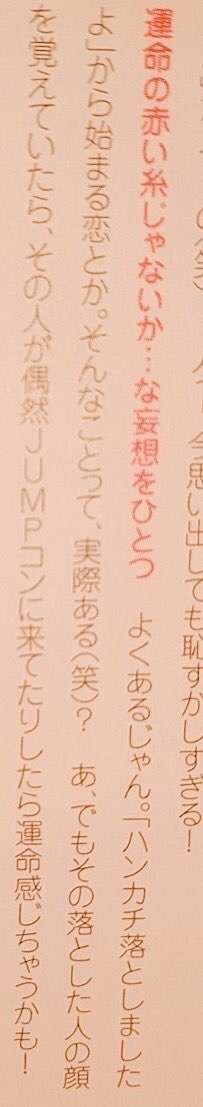 今思い出しても恥ずかしすぎる！
運命の赤い糸じゃないか…な妄想をひとつ　よくあるじゃん。「ハンカチ落としました
よ」から始まる恋とか。そんなことって、実際ある（笑）？　あ、でもその落とした人の顔
を覚えていたら、その人が偶然ＪＵＭＰコンに来てたりしたら運命感じちゃうかも！